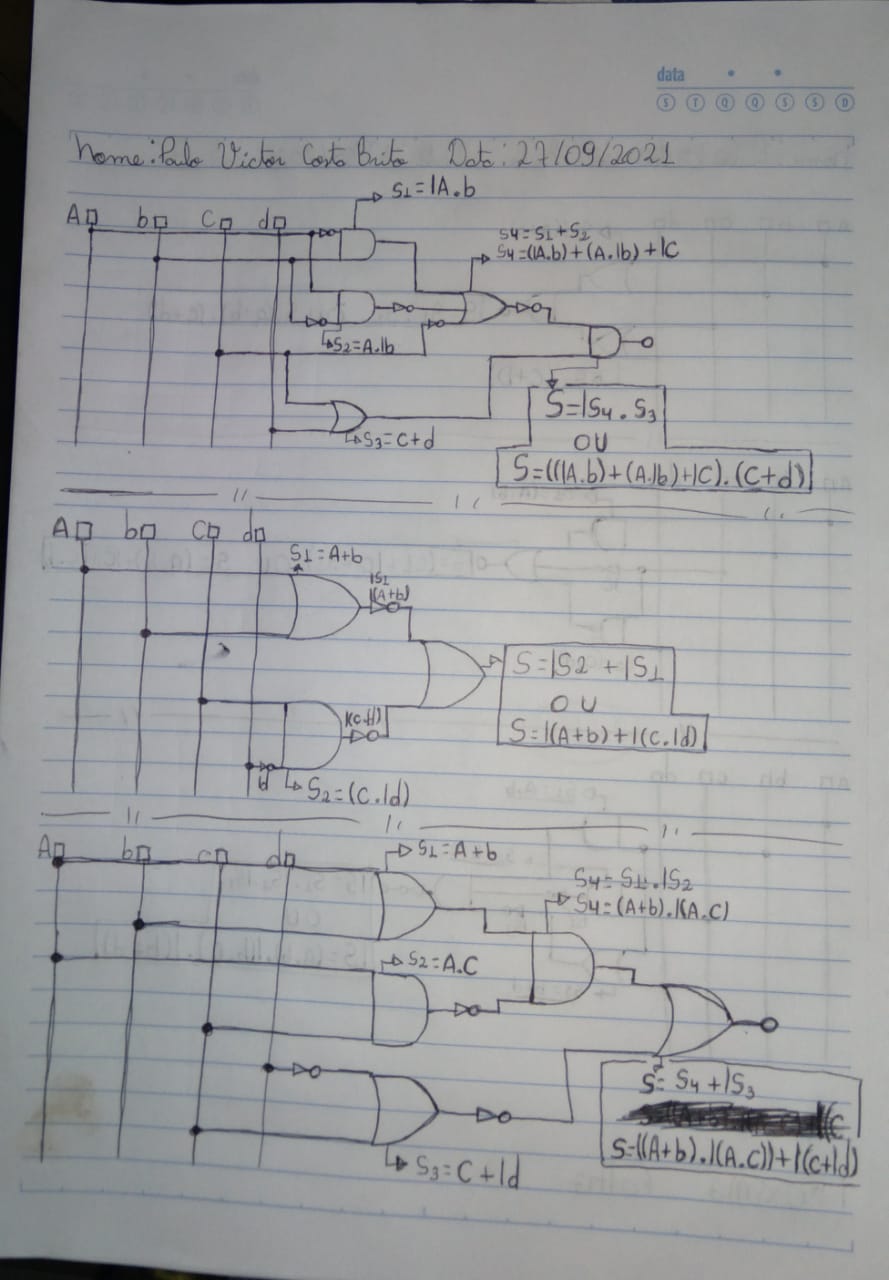 data
S T Q Q S S D
Nome: Paulo Victor Costa Brito Data: 27/09/2021
S1=|A.b
A b C d
S4=S1+S2
S4=(|A.b)+(A.|b)+|C
S2=A.|b
S=|S4.S3
OU
S3=C+d
S=(((|A.b)+(A.|b)+|C).(C+d)
A b C d
S1=A+b
|S1
|(A+b)
S=|S2+|S1
OU
|(C.d)
S=|(A+b)+|(C.|d)
d
S2=(C.|d)
A b c d
S1=A+b
S4=S1.|S2
S4=(A+b).|(A.C)
S2=A.C
S=S4+|S3
|(C
S=((A+b).|(A.C))+|(C+|d)
S3=C+|d